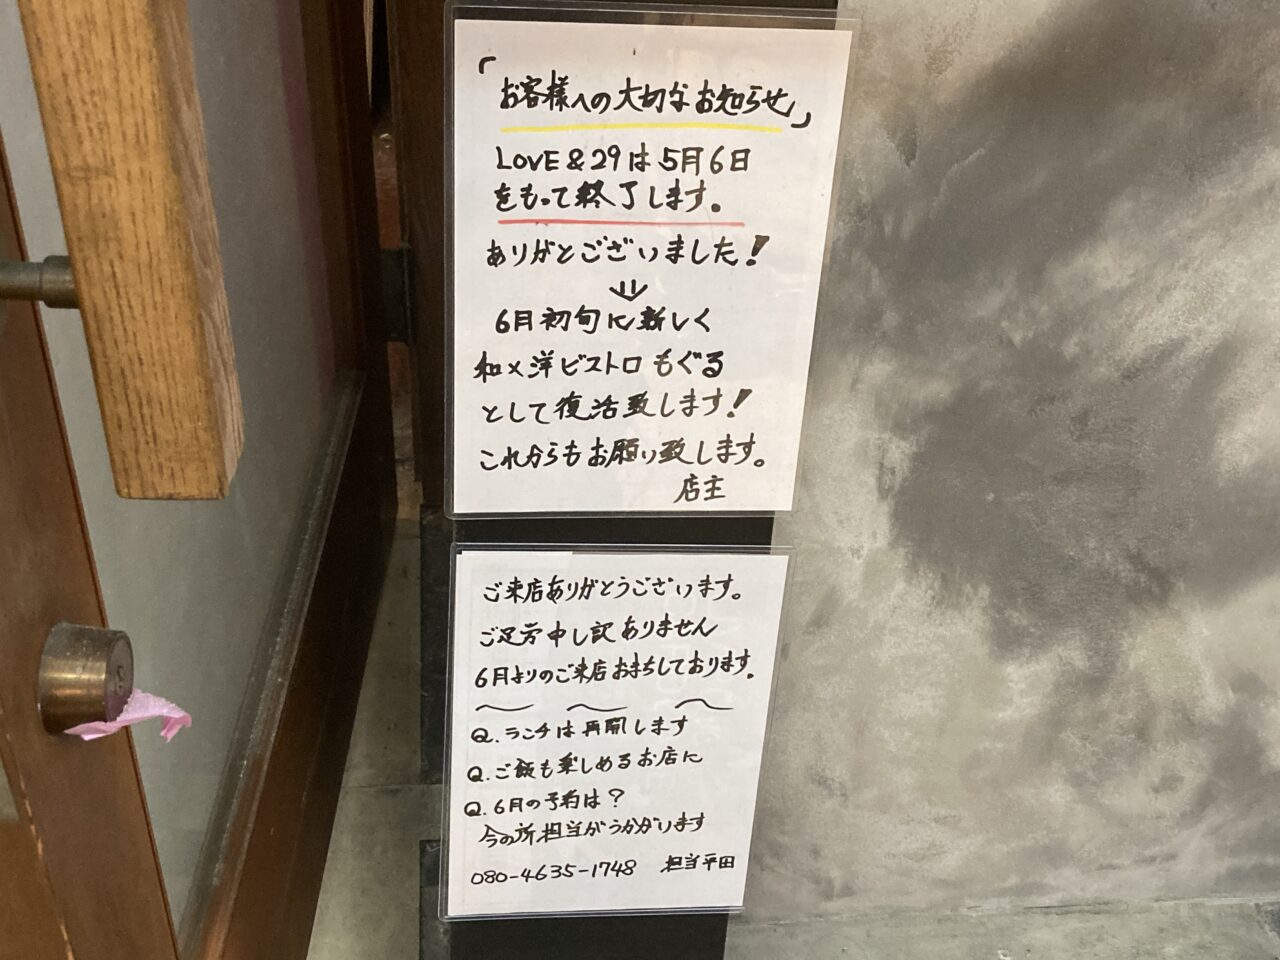 「お客様への大切なお知らせ」
LOVE&29は5月6日
をもって終了します。
ありがとうございました!
⇓
6月初旬に新しく
和×洋ビストロもぐる
として復活致します!
これからもお願い致します。
店主
ご来店ありがとうございます。
ご足労申し訳ありません
6月よりのご来店おまちしております。
Q.ランチは再開します
Q.ご飯も楽しめるお店に
Q.6月の予約は?
今の所担当がうかがいます
080-4635-1748 担当平田